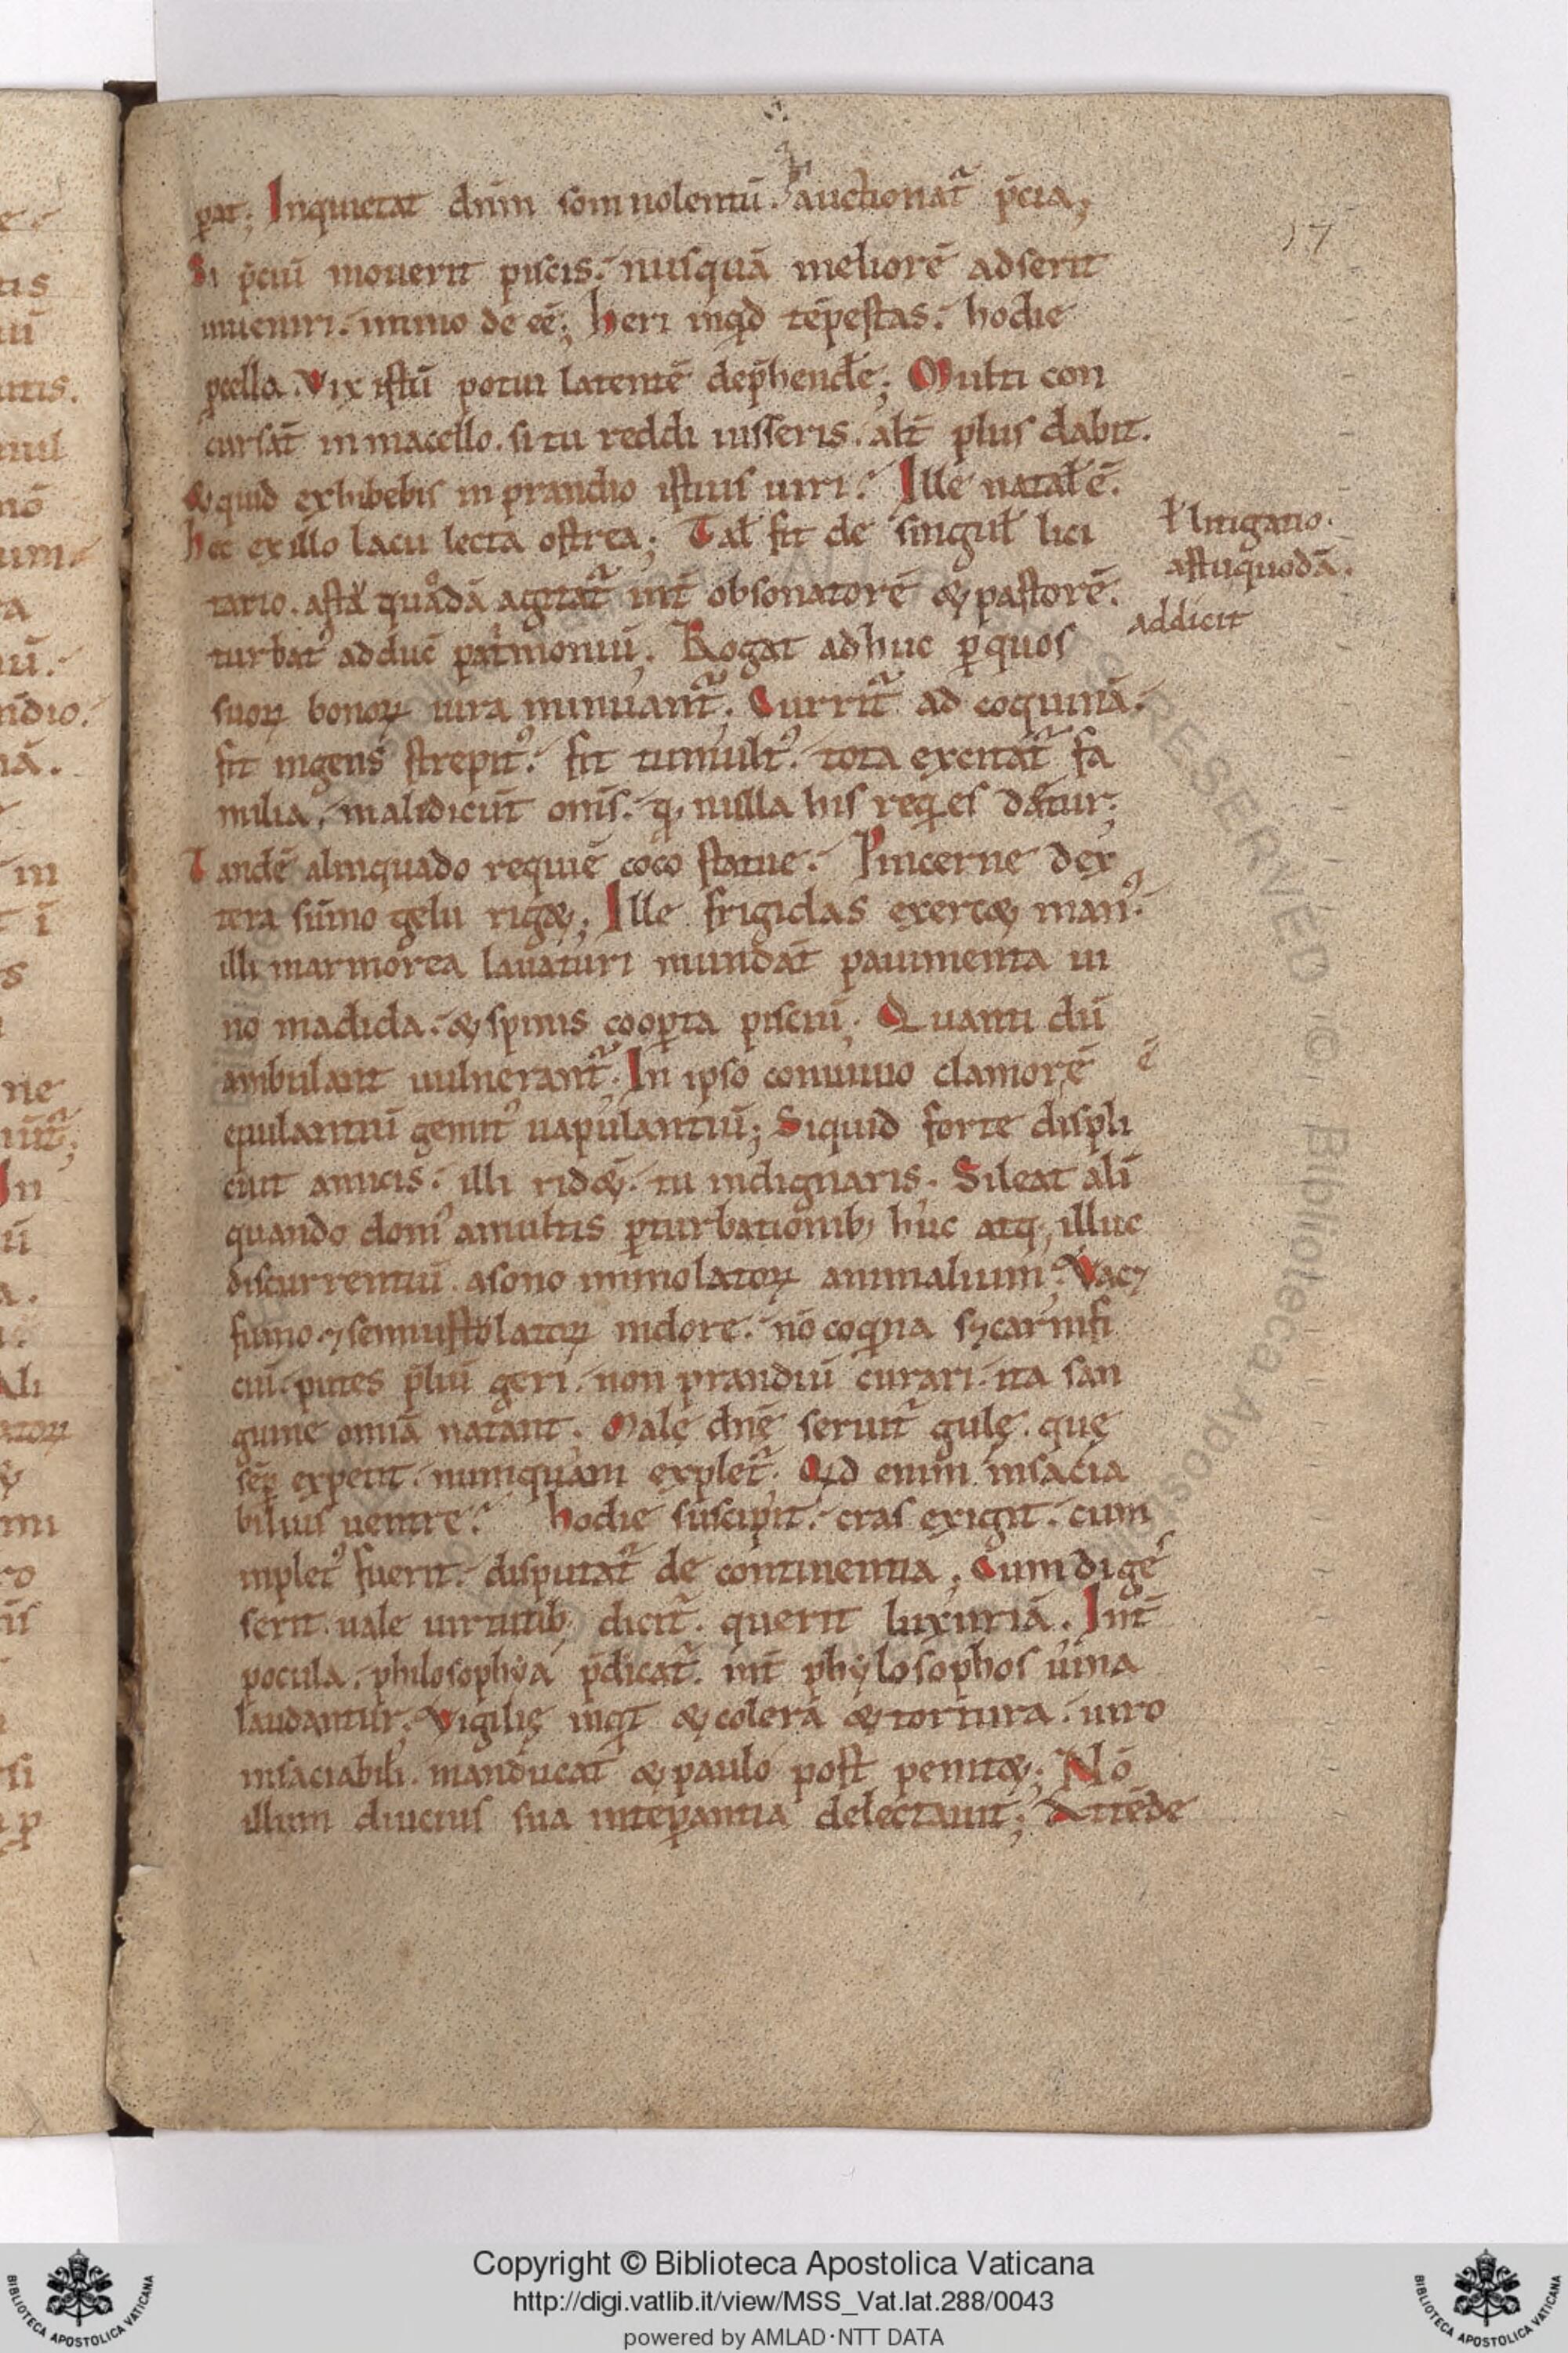 pat; Inquietat dñm somnolentũ. auctionat᷑ p̃cia;
17
Si p̃ciũ mouerit piscis. nusquã meliorẽ adserit
inueniri. immo de eẽ; heri inq̇d tẽpestas. hodie
ꝓcella. Vix istũ potui latentẽ dep̃hendẽ; Multi con
cursãt in macello. si tu reddi iusseris. alt̃ plus dabit.
& quid exhibebis in prandio istius uiri. Ille natał ẽ.
hec ex illo lacu lecta ostrea; Tał fit de singuł lici
ł litigatio.
tatio. asta quadã agitat᷑ int̃ obsonatorẽ & pastorẽ.
astu quodã.
turbat᷑ adduc̃ pat̃moniũ. Rogat adhuc ꝑ quos
addicit
suoꝝ bonoꝝ iura minuant᷑. Currit᷑ ad coquinã.
fit ingens strepit᷒. fit tumult᷒. tota excitat᷑ fa
milia. maledicũt oms̃. q; nulla his reqi̇es datur;
Tandẽ alinquado requiẽ coco statue. Pincerne dex
tera sũmo gelu rig&; Ille frigidas exerc& man᷒.
illi marmorea lauaturi mundãt pauimenta ui
no madida. & spinis coopta pisciũ; Quanti dũ
ambulant uulnerant᷑. In ipso conuiuio clamorẽ
ẽ
epulantiũ gemit᷒ uapulantiũ; Siquid forte displi
cuit amicis. illi rid&. tu indignaris. Sileat ali
quando dom᷒ a multis ꝑturbationib; huc atq; illuc
discurrentiũ. a sono immolatoꝝ animalium. Vac&
fumo. ⁊ semiustolatoꝝ nidore. nõ coqi̇na s; carnifi
ciũ. putes p̃liũ geri. non prandiũ curari. ita san
guine omiã natant; Male dnę̃ seruit᷑ gulę. quę
sẽꝑ expetit. numquam explet᷑. Qi̇d enim insacia
bilius uentre. hodie suscipit. cras exigit. cum
implet᷒ fuerit. disputat᷑ de continentia; Cum dige
serit. uale uirtutib; dicit᷑. querit luxuriã. Int̃
pocula. philosophya p̃dicat᷑. int̃ phylosophos uina
laudantur; Vigilię inqi̇t & colera & tortura. uiro
insaciabili. manducat & paulo post penit&; Nõ
illum diucius sua intẽꝑantia delectauit; Attẽde
Copyright © Biblioteca Apostolica Vaticana
http://digi.vatlib.it/view/MSS_Vat.lat.288/0043
powered by AMLAD·NTT DATA